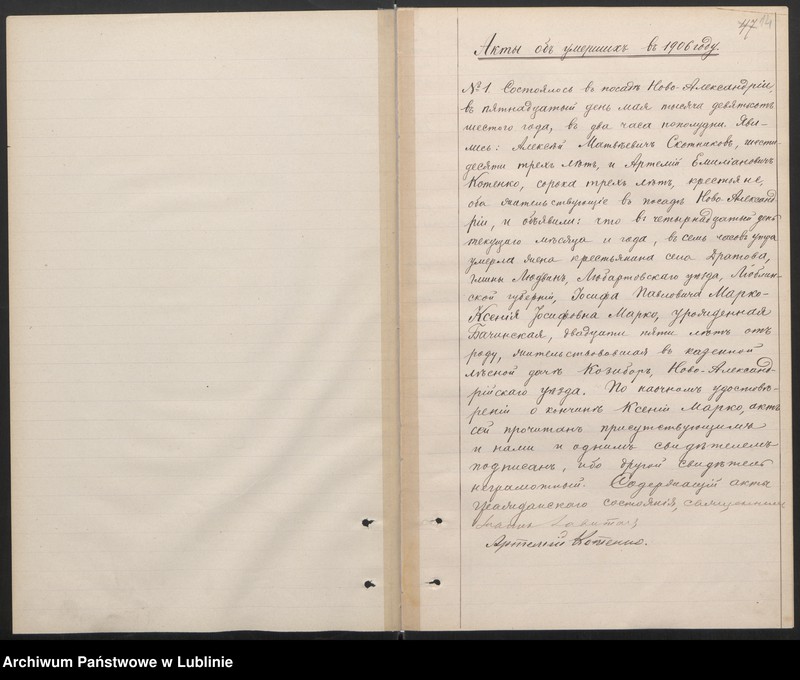 47 14
Акты объ умершихъ въ 1906 году.
№1 Состоялось въ посадѣ Ново-Александріи,
въ пятнадцатый день мая тысяча девятьсотъ
шестого года, въ два часа пополудни. Яви-
лись: Алексѣй Матвѣевичъ Скотниковъ, шести-
десяти трехъ лѣтъ, и Артемій Емиліановичъ
Котенко, сорока трехъ лѣтъ, крестьяне,
оба жительствующіе въ посадѣ Ново-Александ-
ріи, и объявили: что въ четырнадцатый день
текущаго мѣсяца и года, въ семь часовъ утра
умерла жена крестьянина села Дратова,
гмины Людвинъ, Любартовскаго уѣзда, Люблин-
ской губерніи, Іосифа Павловича Марко-
Ксенія Іосифовна Марко, урожденная
Бачинская, двадцати пяти лѣтъ отъ
роду, жительствовавшая въ казенной
лѣсной дачѣ Козиборъ, Ново-Александ-
рійскаго уѣзда. По наочномъ удостовѣ-
реніи о кончинѣ Ксеніи Марко, актъ
сей прочитанъ присутствующимъ
и нами и однимъ свидѣтелемъ
подписанъ, ибо другой свидѣтель
неграмотный. Содержащій акты
гражданскаго состоянія, священникъ
Артемій Котенко.
Archiwum Państwowe w Lublinie